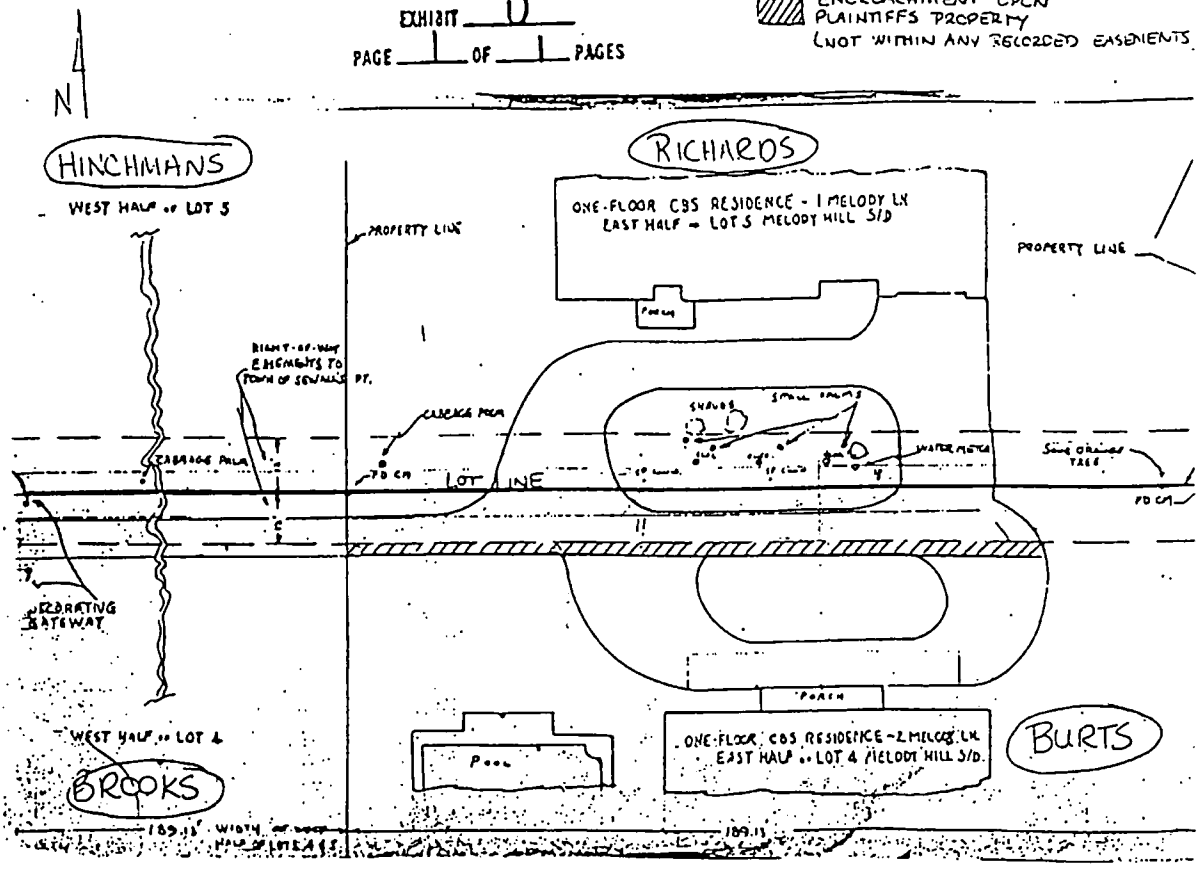 EXHIBIT D
PAGE 1 OF 1 PAGES
ENCROACHMENT UPON
PLAINTIFFS PROPERTY
(NOT WITHIN ANY RECORDED EASEMENTS
N
HINCHMANS
WEST HALF OF LOT 5
RICHARDS
ONE-FLOOR CBS RESIDENCE - 1 MELODY LN
EAST HALF - LOT 5 MELODY HILL S/D
PROPERTY LINE
PROPERTY LINE
PORCH
RIGHT-OF-WAY
EASEMENTS TO
TOWN OF SEWALL'S PT.
CABBAGE PALM
SHRUBS
SMALL PALMS
WATER METER
SOUR ORANGE
TREE
CABBAGE PALM
PD CM
LOT LINE
PD CM
11
DECORATING
GATEWAY
PORCH
WEST HALF OF LOT 4
BROOKS
POOL
ONE-FLOOR CBS RESIDENCE - 2 MELODY LN
EAST HALF OF LOT 4 MELODY HILL S/D.
BURTS
189.13' WIDTH OF WEST
HALF OF LOTS 4 & 5
189.13